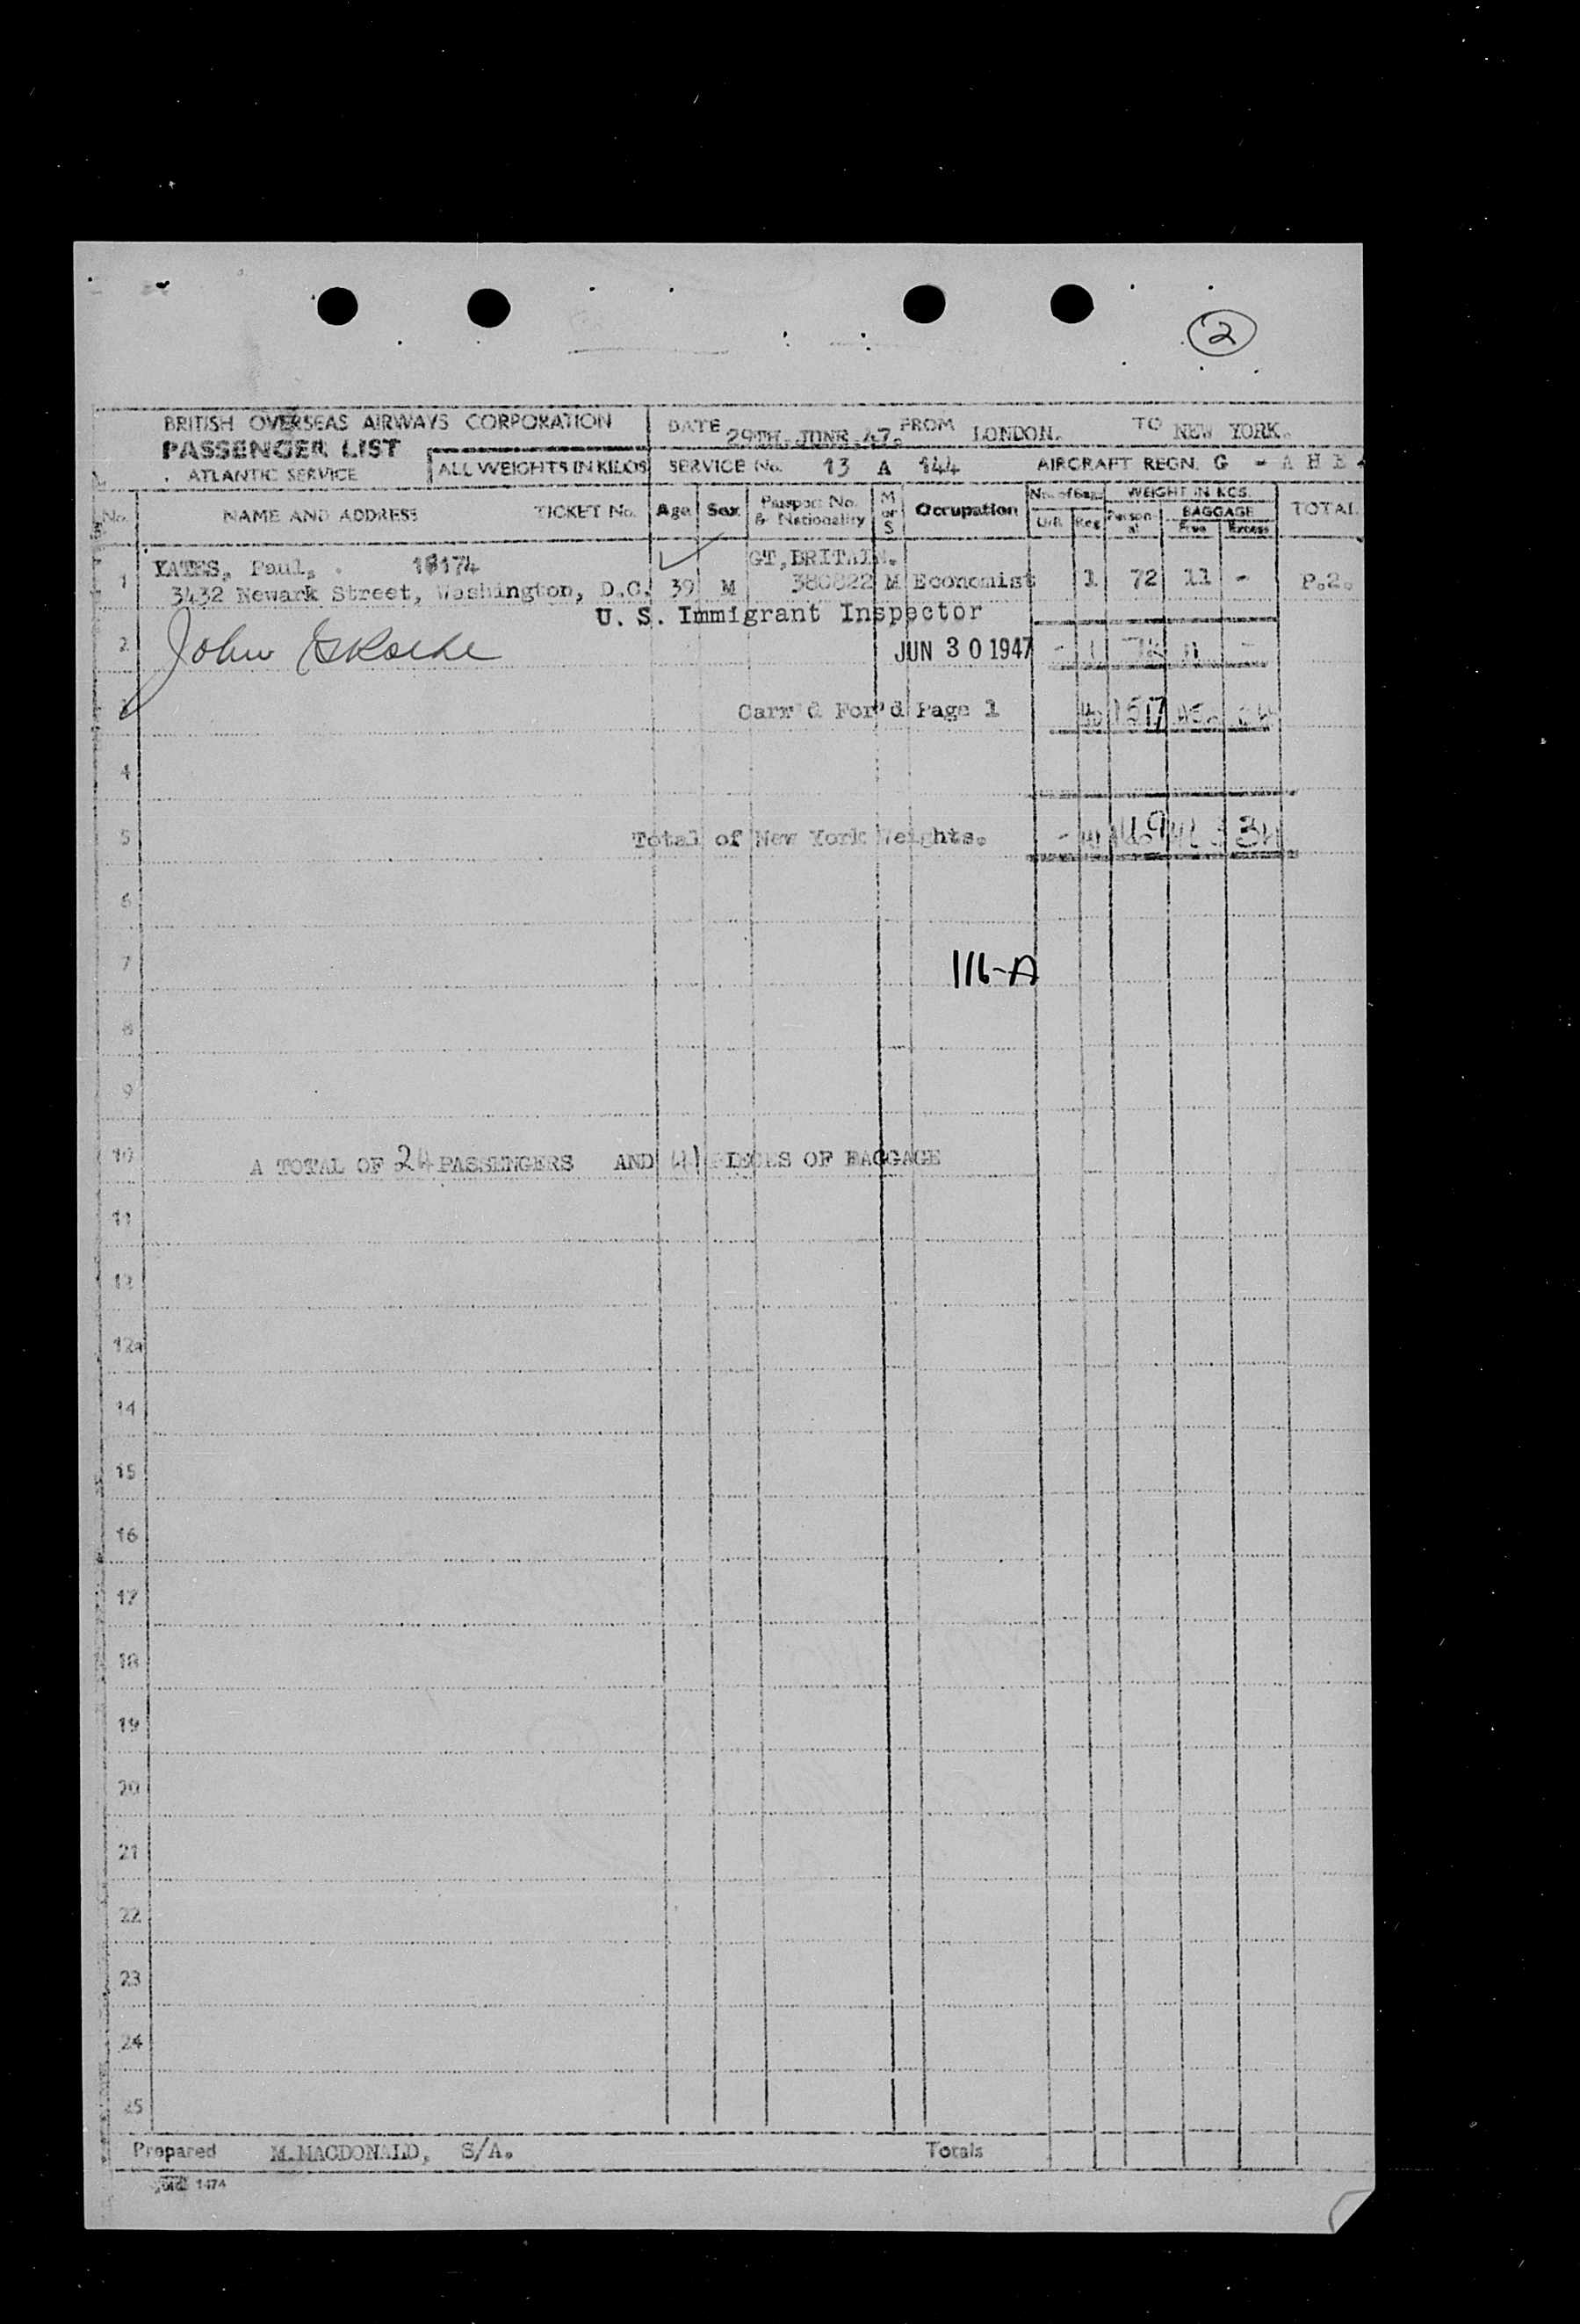 2
BRITISH OVERSEAS AIRWAYS CORPORATION
PASSENGER LIST
ATLANTIC SERVICE
ALL WEIGHTS IN KILOS
DATE 29TH. JUNE .47. FROM LONDON. TO NEW YORK.
SERVICE No. 13 A 144 AIRCRAFT REGN. G - A H E
No. NAME AND ADDRESS TICKET No. Age Sex Passport No. & Nationality M or S Occupation No. of Bags U/R Reg WEIGHT IN KGS. Personal BAGGAGE Free Excess TOTAL
YATES, Paul, . 18174 GT,BRITAIN.
1 3432 Newark Street, Washington, D.C. 39 M 380822 M Economist 1 72 11 - P.2.
U. S. Immigrant Inspector
2 John JUN 30 1947 - 1 72 11 -
3 Carr'd For'd Page 1
4
5 Total of New York Weights.
6
7 116-A
8
9
10 A TOTAL OF 24 PASSENGERS AND 41 PIECES OF BAGGAGE
11
12
12a
14
15
16
17
18
19
20
21
22
23
24
25
Prepared M.MACDONALD, S/A. Totals
1474